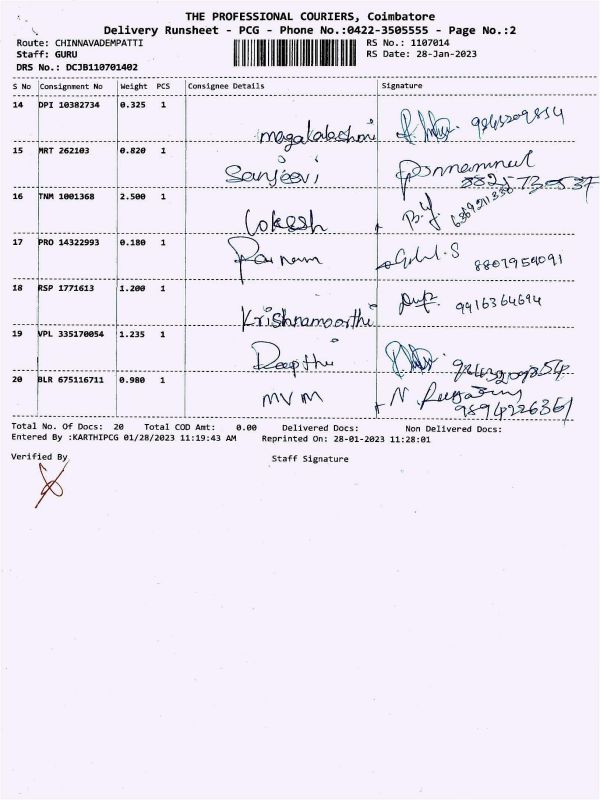 THE PROFESSIONAL COURIERS, Coimbatore
Delivery Runsheet - PCG - Phone No.:0422-3505555 - Page No.:2
Route: CHINNAVADEMPATTI RS No.: 1107014
Staff: GURU RS Date: 28-Jan-2023
DRS No.: DCJB110701402
S No Consignment No Weight PCS Consignee Details Signature
14 DPI 10382734 0.325 1
magalakshmi
15 MRT 262103 0.820 1
Sanjeevi
16 TNM 1001368 2.500 1
Lokesh
17 PRO 14322993 0.180 1
Gokul.S 8807954091
18 RSP 1771613 1.200 1
Krishnamoorthi 9916364694
19 VPL 335170054 1.235 1
Deepthi
20 BLR 675116711 0.980 1
MVM 9894226361
Total No. Of Docs: 20 Total COD Amt: 0.00 Delivered Docs: Non Delivered Docs:
Entered By :KARTHIPCG 01/28/2023 11:19:43 AM Reprinted On: 28-01-2023 11:28:01
Verified By Staff Signature